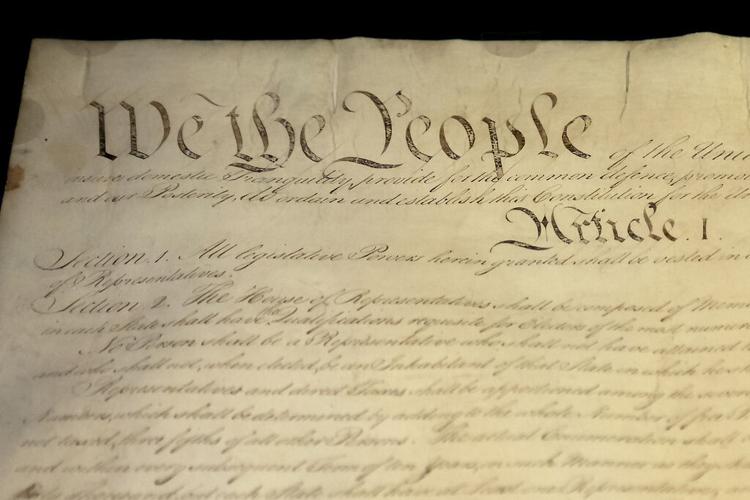 We the People of the Unit
insure domestic Tranquility, provide for the common defence, promo
and our Posterity, do ordain and establish this Constitution for the Un
Article. I.
Section. 1. All legislative Powers herein granted shall be vested in a
of Representatives.
Section. 2. The House of Representatives shall be composed of Mem
in each State shall have the Qualifications requisite for Electors of the most numer
No Person shall be a Representative who shall not have attained t
and who shall not, when elected, be an Inhabitant of that State in which he sh
Representatives and direct Taxes shall be apportioned among the sever
Numbers, which shall be determined by adding to the whole Number of free P
not taxed, three fifths of all other Persons. The actual Enumeration shall
and within every subsequent Term of ten Years, in such Manner as they sh
each State shall have at Least one Representative